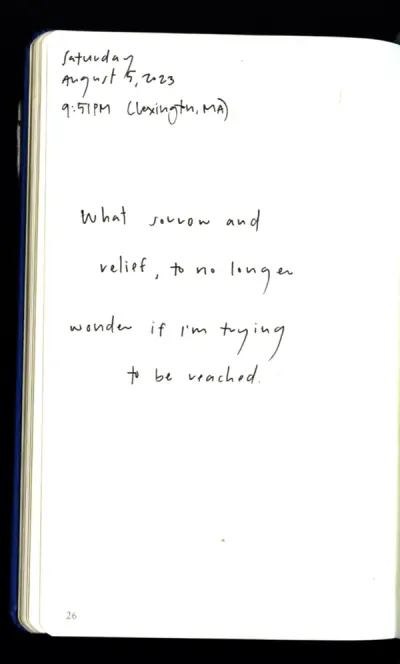 Saturday
August 5, 2023
9:51PM (Lexington, MA)
What sorrow and
relief, to no longer
wonder if I'm trying
to be reached.
26